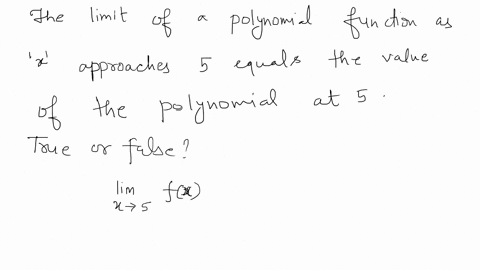 The limit of a polynomial function as
'x' approaches 5 equals the value
of the polynomial at 5.
True or false?
lim f(x)
x→5